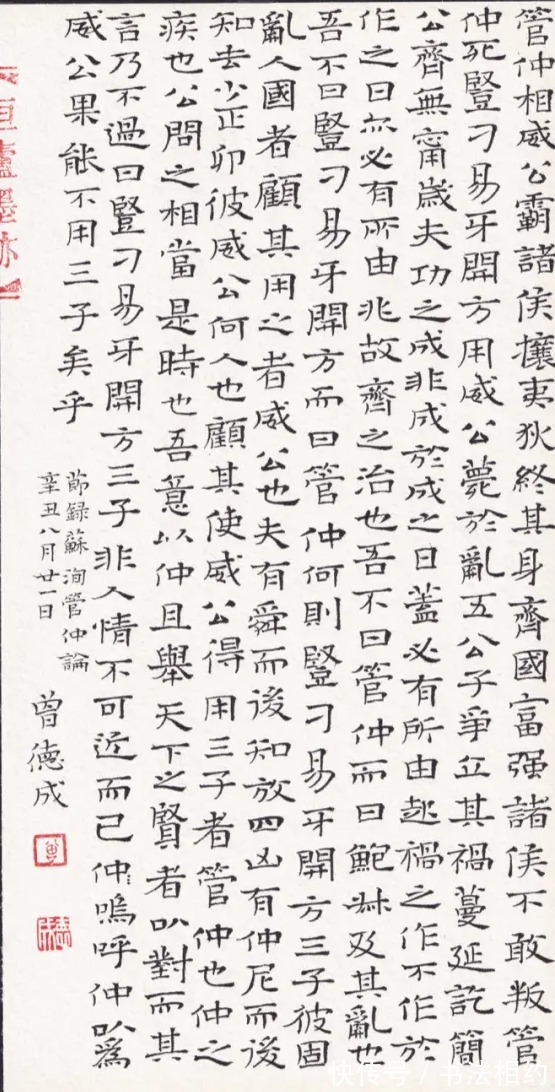 管仲相威公霸諸侯攘夷狄終其身齊國富强諸侯不敢叛管
仲死豎刁易牙開方用威公薨於亂五公子爭立其禍蔓延訖簡
公齊無甯歲夫功之成非成於成之日蓋必有所由起禍之作不作於
作之日亦必有所由兆故齊之治也吾不曰管仲而曰鮑叔及其亂也
吾不曰豎刁易牙開方而曰管仲何則豎刁易牙開方三子彼固
亂人國者顧其用之者威公也夫有舜而後知放四凶有仲尼而後
知去少正卯彼威公何人也顧其使威公得用三子者管仲也仲之
疾也公問之相當是時也吾意以仲且舉天下之賢者以對而其
言乃不過曰豎刁易牙開方三子非人情不可近而已仲嗚呼仲以為
威公果能不用三子矣乎
節録蘇洵管仲論
辛丑八月廿一日
曾德成
快传号/书法相约